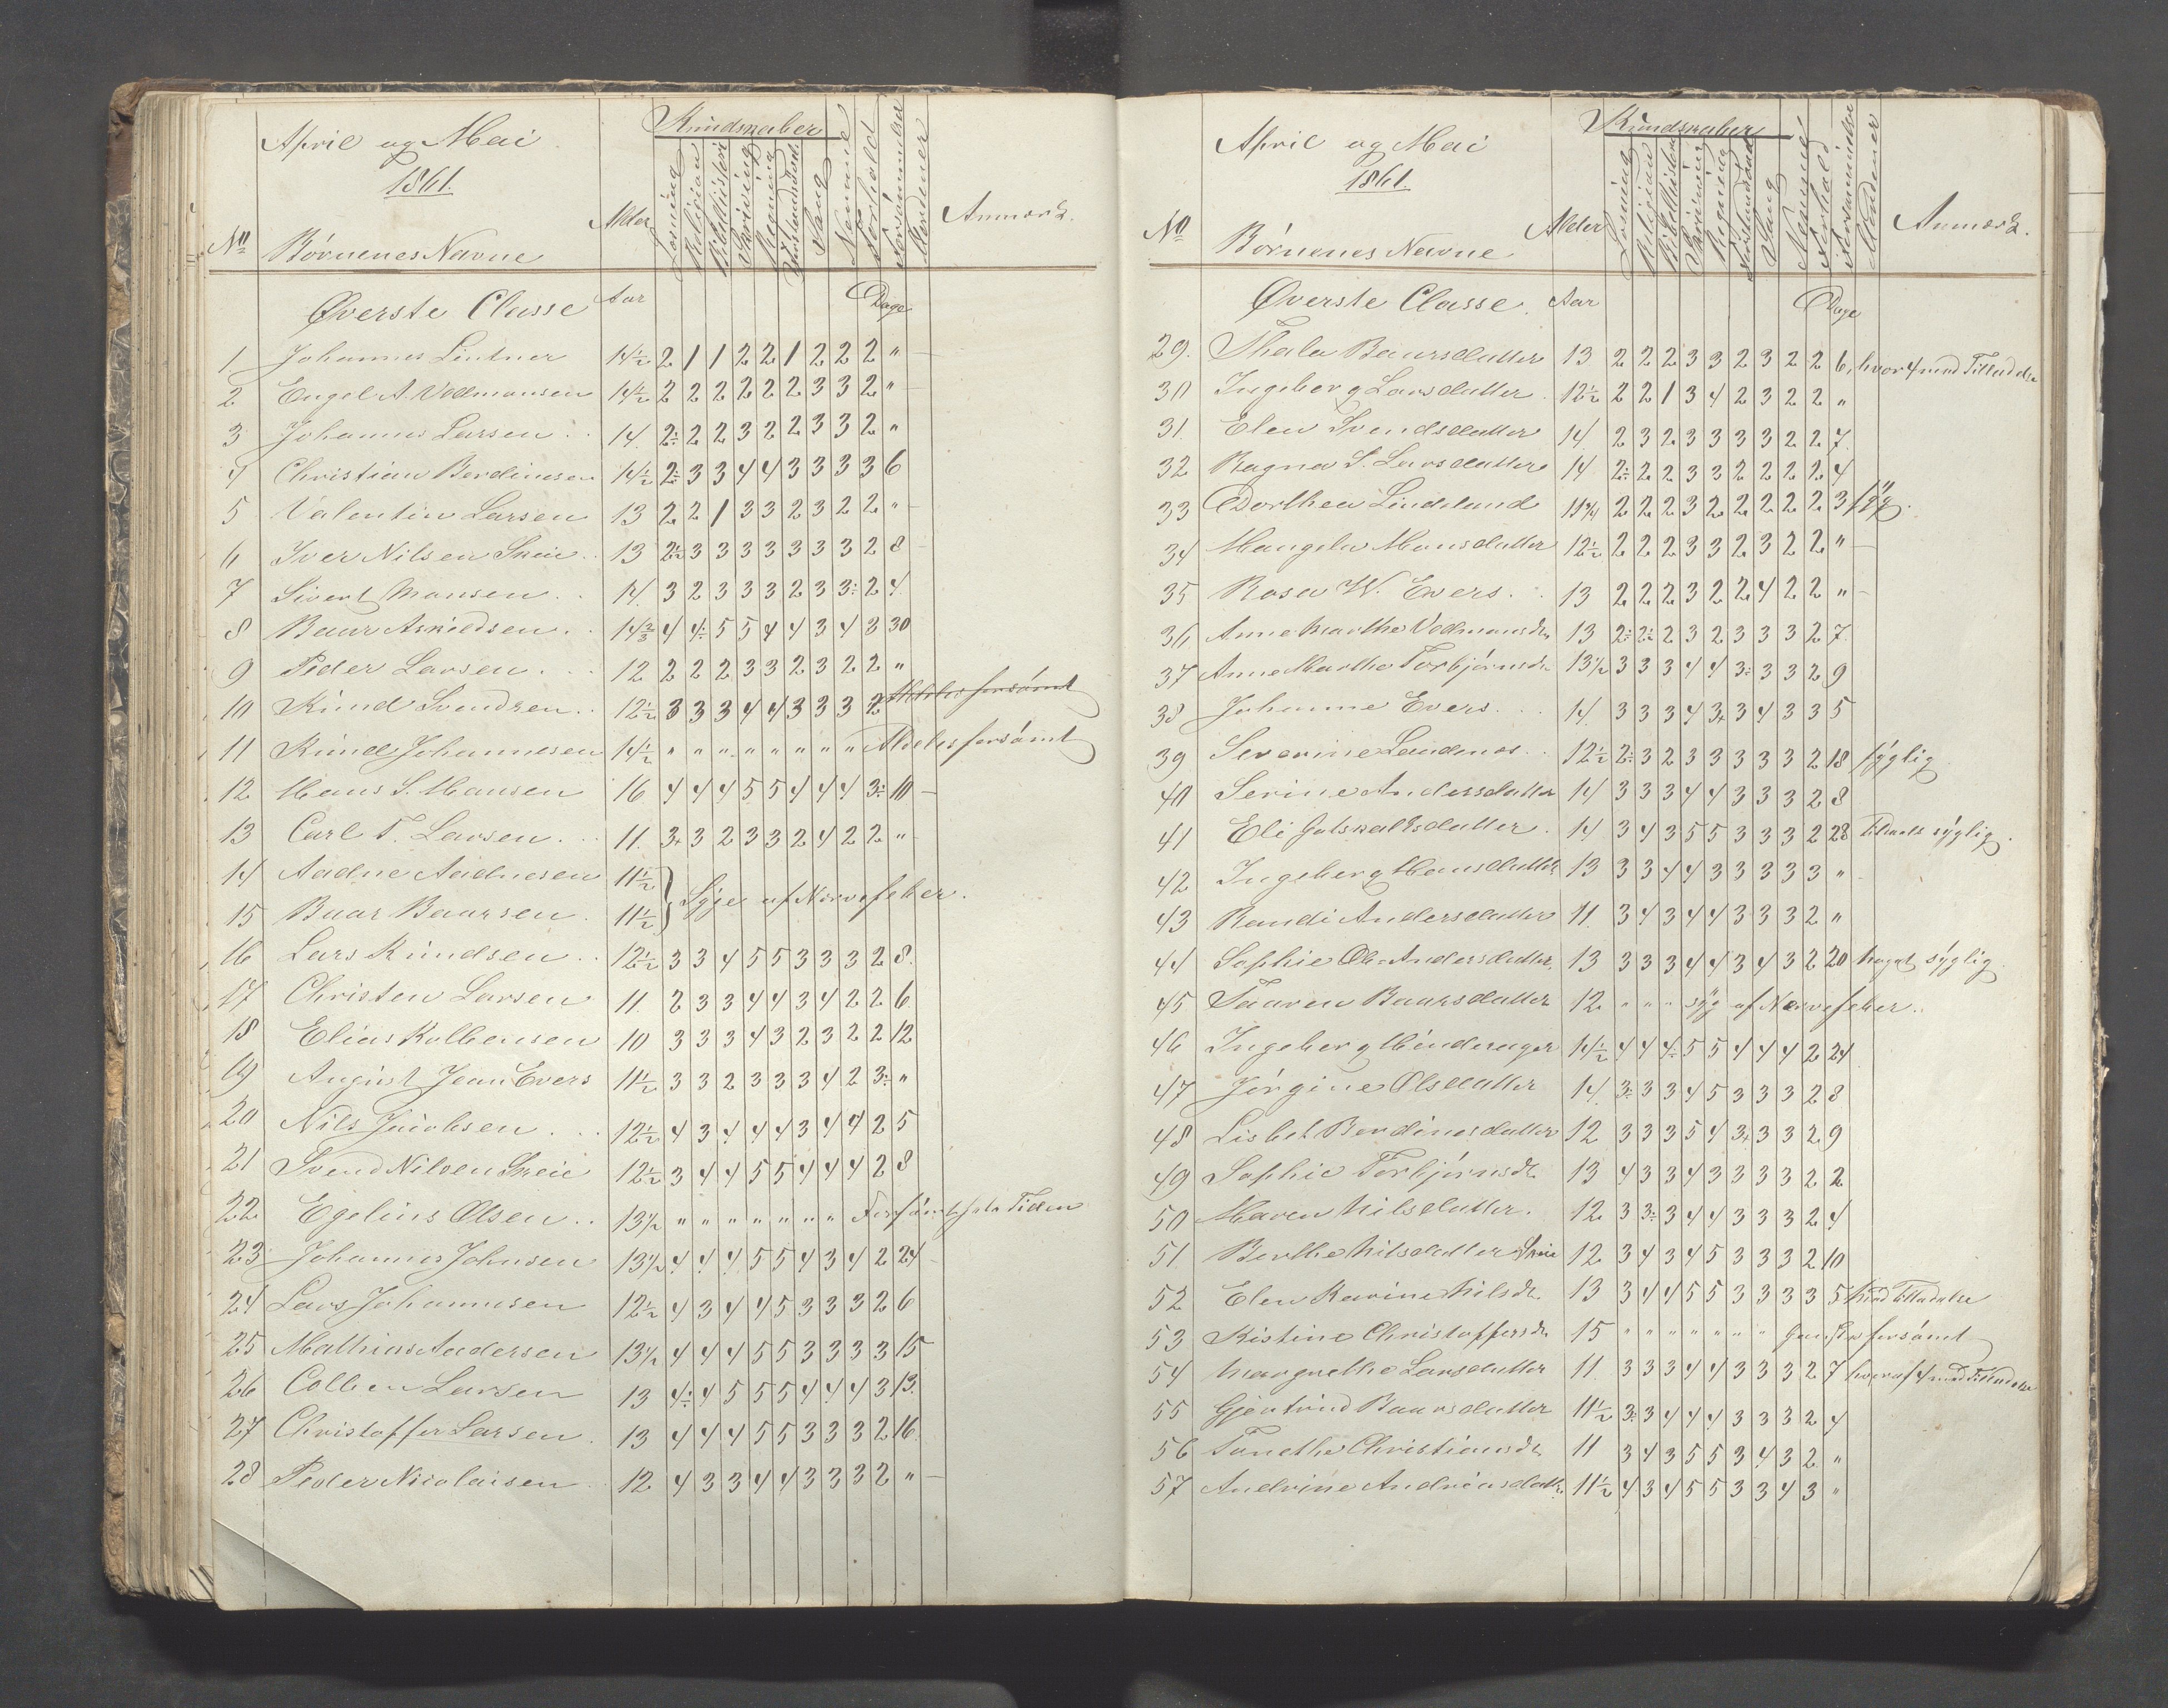 April og Mai
1861.
Kundskaber
No Børnenes Navne Alder Læsning Religion Bibelhistorie Skrivning Regning Forstandsøvl. Sang Nemme Forhold Forsømmelser Modener Anmærk.
Øverste Classe Aar Dage
1. Johannes Lindner 14½ 2 1 1 2 2 1 2 2 2 "
2 Engel A. Vedmansen 14½ 2 2 2 2 2 2 3 3 2 "
3 Johannes Larsen 14 2÷ 2 2 3 2 2 3 3 2 "
4 Christian Berdinesen 14½ 2÷ 3 3 4 4 3 3 3 3 6
5 Valentin Larsen 13 2 2 1 3 3 2 3 2 2 "
6 Iver Nilsen Skeie 13 2½ 3 3 3 3 3 3 3 2 8
7 Sivert Monsen 14 3 2 3 3 3 2 3 3÷ 2 4
8 Baar Askildsen 14⅔ 4 4÷ 5 5 4 4 3 4 3 30
9 Peder Larsen 12 2 2 2 3 3 2 3 2 2 "
10 Knud Svendsen 12½ 3 3 3 4 4 3 3 3 2 Aldeles forsømt
11 Knud Johannesen 14½ " " " " " " " " Aldeles forsømt
12 Hans S. Hansen 16 4 4 4 5 5 4 4 4 3÷ 10
13 Carl T. Larsen 11. 3+ 3 2 3 3 2 4 2 2 "
14 Aadne Aadnesen 11½ } Syge af Nervefeber.
15 Baar Baarsen 11½
16 Lars Knudsen 12½ 3 3 4 5 5 3 3 3 2 8.
17 Christen Larsen 11. 2 3 3 4 4 3 4 2 2 6
18 Elias Kolbensen 10 3 3 3 4 3 2 3 2 2 12
19 August Jean Evers 11½ 3 3 2 3 3 3 4 2 3÷ "
20 Nils Jacobsen 12½ 4 3 4 4 4 3 4 4 2 5
21 Svend Nilsen Skeie 12½ 3 4 4 5 5 4 4 4 2 8
22 Egelius Olsen 13½ " " " " " " " Forsømt hele Tiden
23 Johannes Johnsen 13½ 4 4 4 5 5 4 3 4 2 24
24 Lars Johannesen 12½ 4 3 4 4 5 3 3 3 2 6
25 Mathias Andersen 13½ 4 4 4 5 5 3 3 3 3 15
26 Colben Larsen 13 4÷ 4 5 5 5 4 4 4 3 13.
27 Christoffer Larsen 13 4 4 4 5 5 3 3 3 2 16.
28 Peder Nicolaisen 12 4 3 3 4 4 3 3 3 2 "
April og Mai
1861.
Kundskaber
No Børnenes Navne Alder Læsning Religion Bibelhistorie Skrivning Regning Forstandsøvl. Sang Nemme Forhold Forsømmelser Modener Anmærk.
Øverste Classe. Aar Dage
29. Thala Baarsdatter 13 2 2 2 3 3 2 3 2 2 6, hvor 4 med Tilladelse
30 Ingeborg Larsdatter 12½ 2 2 1 3 4 2 3 2 2 "
31. Elen Svendsdatter 14 2 3 2 3 3 3 3 2 2 7
32 Ragna S. Larsdatter 14 2÷ 2 2 3 3 2 2 2 2 4
33 Dorthea Lindeland 11¾ 2 2 2 3 2 2 2 2 2 3 syg.
34 Mangela Monsdatter 12½ 2 2 2 3 3 2 3 2 2 "
35 Rosa W. Evers 13 2 2 2 3 2 2 4 2 2 "
36 Anne Marthe Vedmansdr 13 2÷ 2½ 2 3 2 3 3 3 2 7.
37 Anne Marthe Torbjørnsdr 13½ 3 3 3 4 4 3÷ 3 3 2 9
38 Johanne Evers 14 3 3 3 4 3+ 3 4 3 3 5
39 Severine Laudenes 12½ 2÷ 3 2 3 3 3 3 3 2 18 syglig
40 Serine Andersdatter 14 3 3 3 4 4 3 3 3 2 8
41 Eli Gotskalksdatter 14 3 4 3 5 5 3 3 3 2 28 Tildeels syglig.
42 Ingeborg Hansdatter 13 3 3 4 4 3 3 3 3 3 "
43 Randi Andersdatter 11. 3 4 3 4 4 3 3 3 2 "
44 Sophie Ol. Andersdatter 13 3 3 3 4 4 3 4 3 2 20 noget syglig.
45 Taaren Baarsdatter 12 " " " syg af Nervefeber.
46 Ingeborg Hinderager 14½ 4 4 4÷ 5 5 4 4 4 2 24
47 Jørgine Olsdatter 14. 3÷ 3 3 4 5 3 3 3 2 8
48 Lisbet Berdinesdatter 12 3 3 3 5 4 3+ 3 3 2 9
49 Sophie Torbjørnsdr 13 4 3 3 4 3 3 3 3 2 2
50 Maren Nilsdatter. 12 3 3÷ 3 4 4 3 3 3 2 4
51. Berthe Nilsdatter Skeie 12 3 4 3 4 5 3 3 3 2 10
52 Elen Karine Nilsdr. 13 3 4 4 5 5 3 3 3 3 5 med Tilladelse
53 Kistine Christoffersdr 15 " " " " " " " ganske forsømt
54 Margrethe Larsdatter 11. 3 3 3 4 4 3 3 3 2 7 hvoraf 4 med Tilladelse
55 Gjertrud Baarsdatter 11½ 3÷ 3 4 4 4 3 3 3 2 4
56 Tonethe Christiansdr 11 3 4 3 5 5 3 4 3 2 "
57 Andrine Andreasdatter 11½ 4 3 4 5 5 3 3 4 3 "